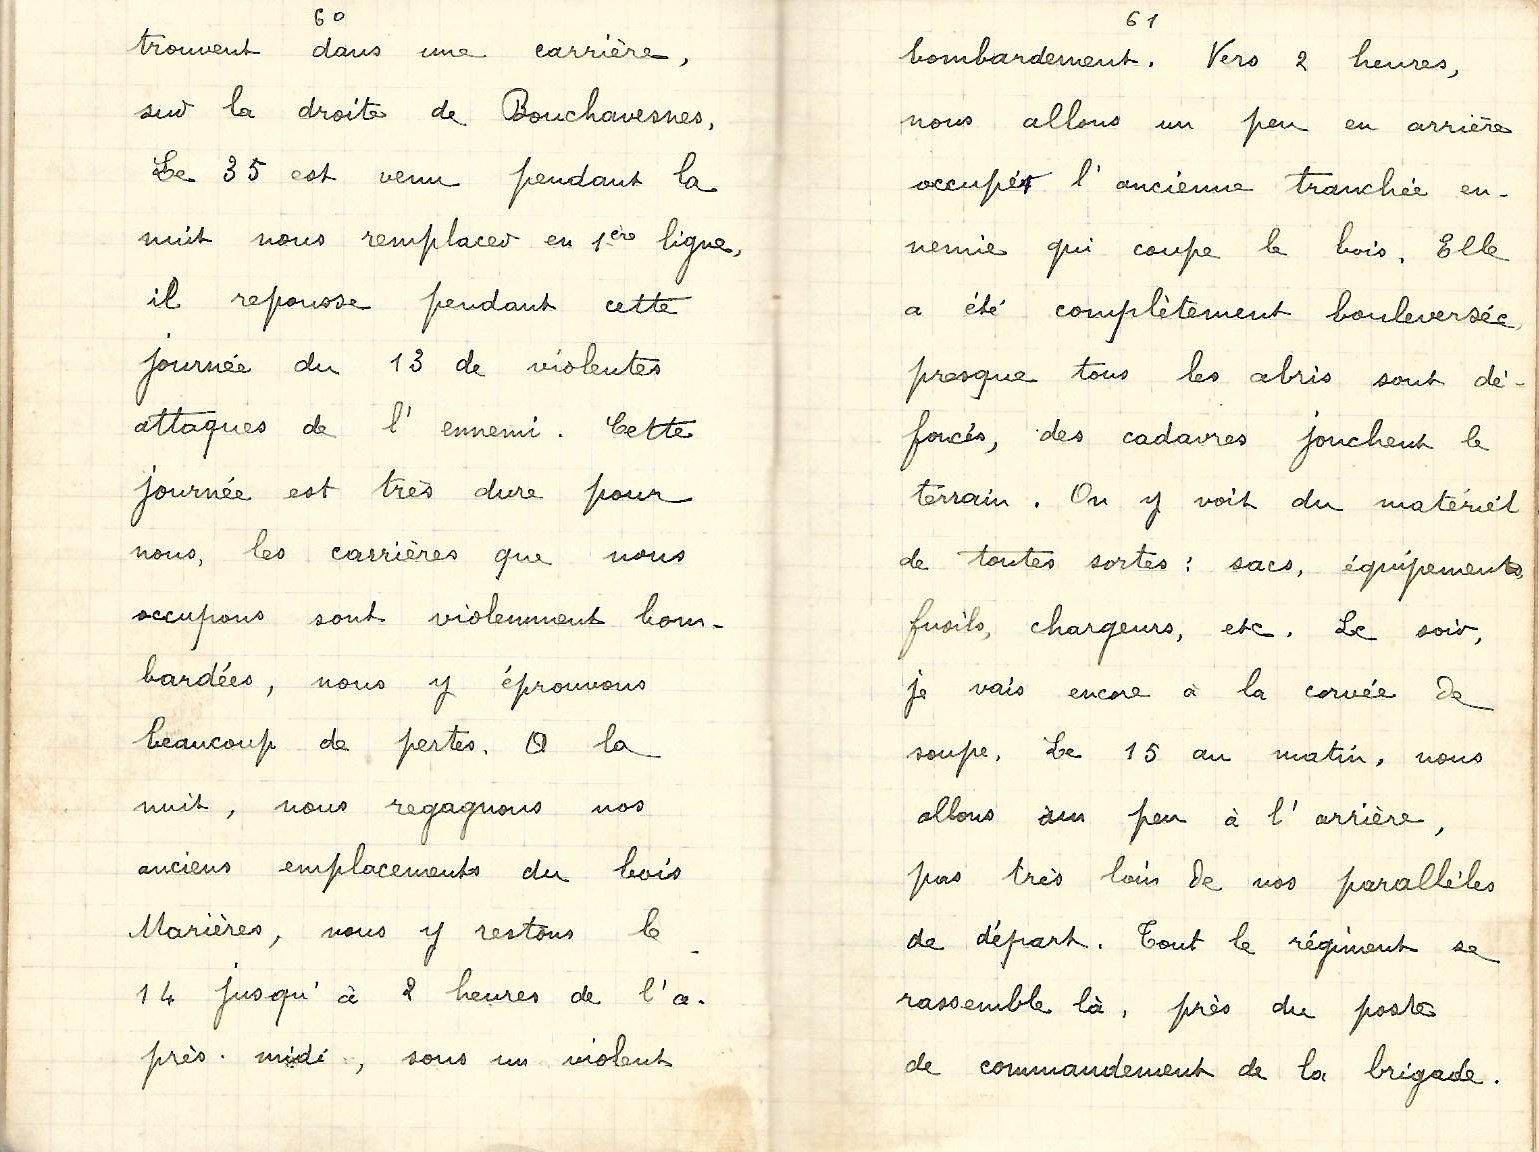 60
trouvent dans une carrière,
sur la droite de Bouchavesnes,
Le 35 est venu pendant la
nuit nous remplacer en 1ère ligne,
il repousse pendant cette
journée du 13 de violentes
attaques de l'ennemi. Cette
journée est très dure pour
nous, les carrières que nous
occupons sont violemment bom-
bardées, nous y éprouvons
beaucoup de pertes. A la
nuit, nous regagnons nos
anciens emplacements du bois
Marières, nous y restons le
14 jusqu'à 2 heures de l'a-
près-midi, sous un violent
61
bombardement. Vers 2 heures,
nous allons un peu en arrière
occuper l'ancienne tranchée en-
nemie qui coupe le bois. Elle
a été complètement bouleversée,
presque tous les abris sont dé-
foncés, des cadavres jonchent le
terrain. On y voit du matériel
de toutes sortes : sacs, équipements,
fusils, chargeurs, etc. Le soir,
je vais encore à la corvée de
soupe. Le 15 au matin, nous
allons un peu à l'arrière,
pas très loin de nos parallèles
de départ. Tout le régiment se
rassemble là, près du poste
de commandement de la brigade.